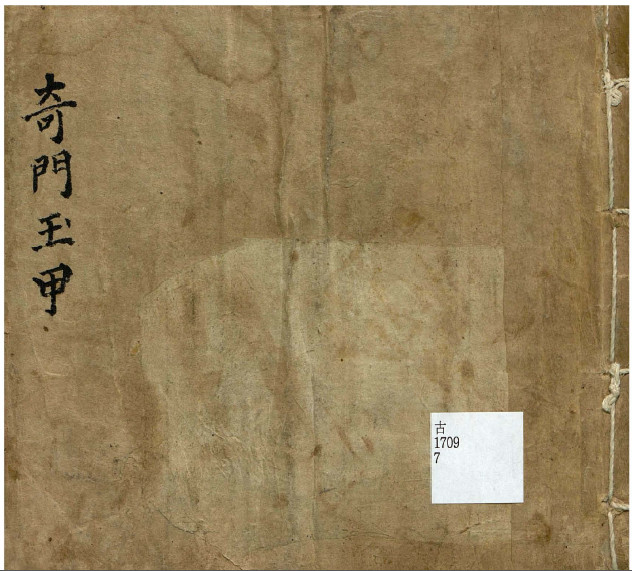 奇門玉甲
古
1709
7